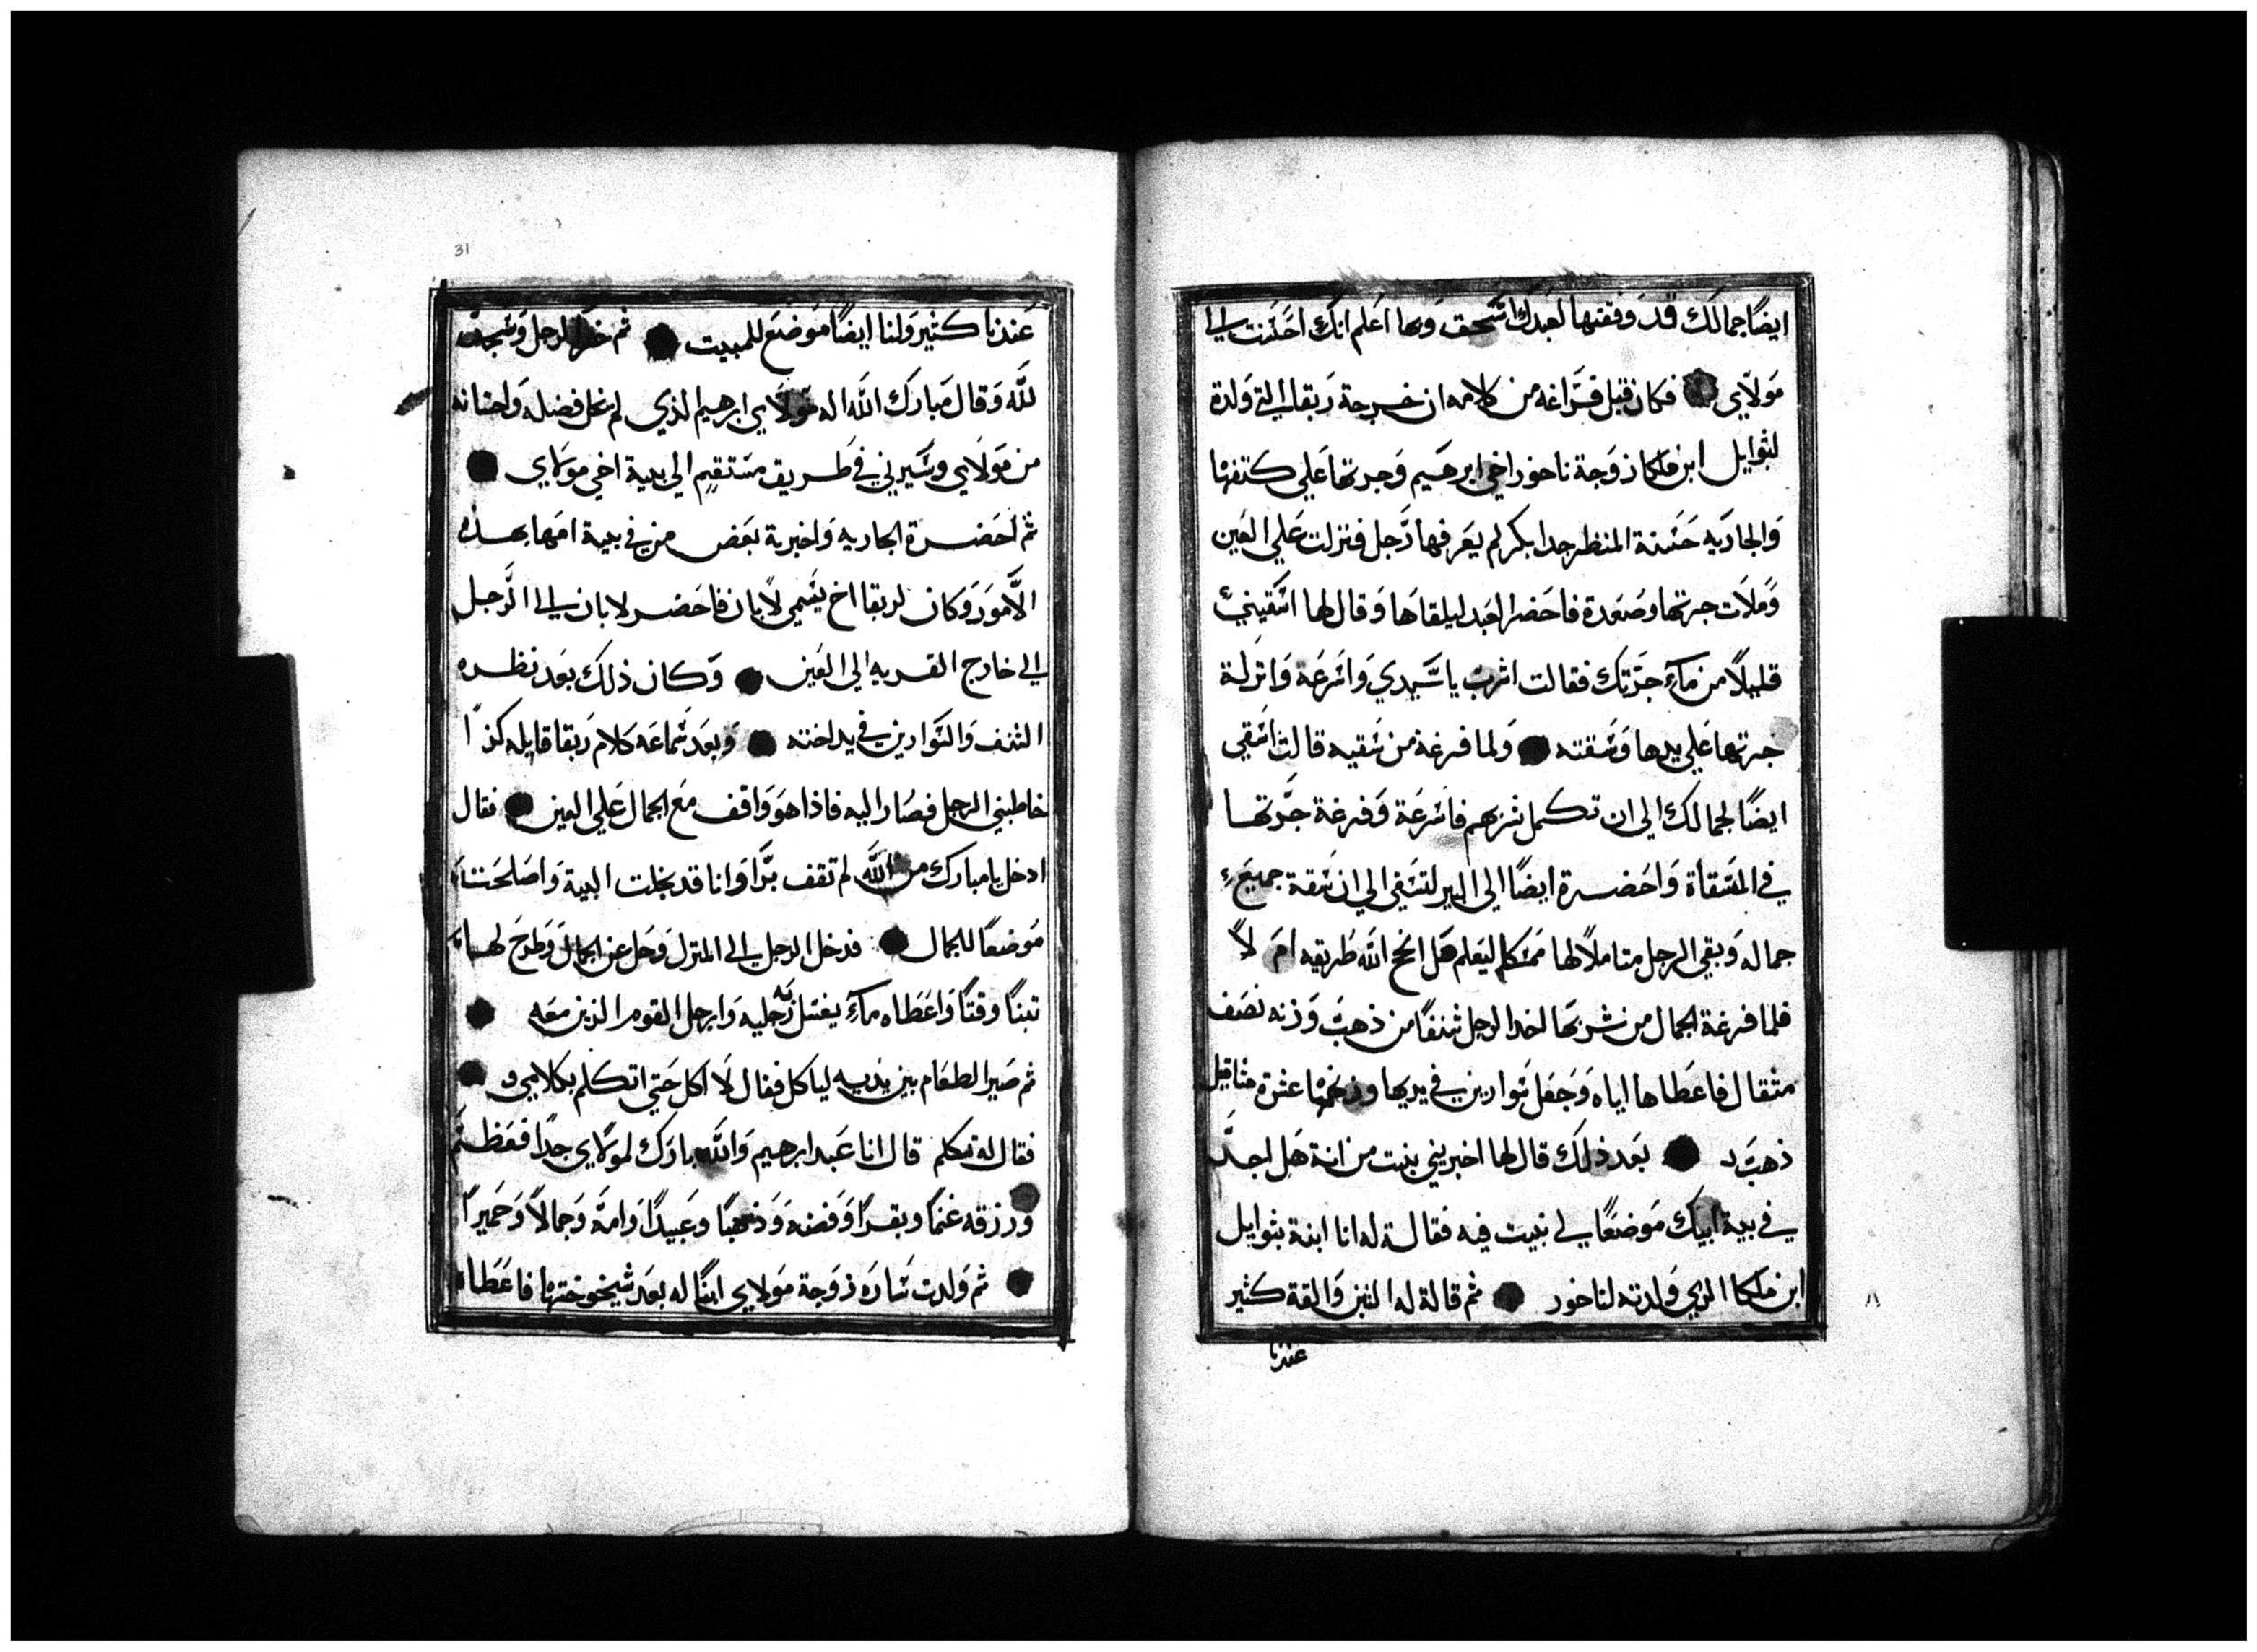 ايضًا جمالك قد وفقتها لعبدك اسحق وبها اعلم انك احسنت الي
مولاي فكان قبل فراغه من كلامه ان خرجة ربقا التي ولدة
لبثوايل ابن ملكا زوجة ناحور اخي ابرهيم وجرتها علي كتفها
والجاريه حسنة المنظر جدا بكر لم يعرفها رجل فنزلت علي العين
وملات جرتها وصعدة فاحضر العبد ليلقاها وقال لها اسقيني
قليلًا من ماء جرتك فقالت اشرب يا سيدي واسرعة وانزلة
جرتها علي يدها وسقته ولما فرغة من سقيه قالت اسقي
ايضًا لجمالك الي ان تكمل شربهم فاسرعة وفرغة جرتها
في المسقاة واحضرة ايضًا الي البير لتسقي الي ان سقة جميع
جماله وبقي الرجل متاملًا لها ممسكا ليعلم هل انجح الله طريقه ام لا
فلما فرغة الجمال من شربها اخد الرجل شنفًا من ذهب وزنه نصف
مثقال فاعطاها اياه وجعل سوارين في يديها وزنهما عشرة مثاقيل
ذهب بعد ذلك قال لها اخبريني بنت من انة هل اجد
في بية ابيك موضعًا لي نبيت فيه فقالة له انا ابنة بثوايل
ابن ملكا الذي ولدته لناحور ثم قالة له التبن والقة كثير
عندنا
31
عندنا كثير ولنا ايضًا موضع للمبيت ثم خر الرجل وسجد
لله وقال مبارك الله اله مولاي ابرهيم الذي لم يخل فضله واحسانه
من مولاي وسيرني في طريق مستقيم الي بية اخي مولاي
ثم احضرة الجاريه واخبرة بعض من في بية امها بهذه
الامور وكان لربقا اخ يسمي لابان فاحضر لابان الي الرجل
الي خارج القريه الي العين وكان ذلك بعد نظره
الشنف والسوارين في يد اخته وبعد سماعه كلام ربقا قايله كذا
خاطبني الرجل فصار اليه فاذا هو واقف مع الجمال علي العين فقال
ادخل يا مبارك من الله لم تقف برا وانا قد بخلت البية واصلحت
موضعًا للجمال فدخل الرجل الي المنزل وحل عن الجمال وطرح لها
تبنًا وقتًا واعطاه ماء يغسل به رجليه وارجل القوم الذين معه
ثم صير الطعام بين يديه لياكل فقال لا اكل حتي اتكلم بكلامي
فقال له تكلم قال انا عبد ابرهيم والله بارك لمولاي جدًا فعظم
ورزقه غنمًا وبقرًا وفضه وذهبًا وعبيدًا وامة وجمالًا وحميرًا
ثم ولدت ساره زوجة مولاي ابنًا له بعد شيخوختها فاعطاه